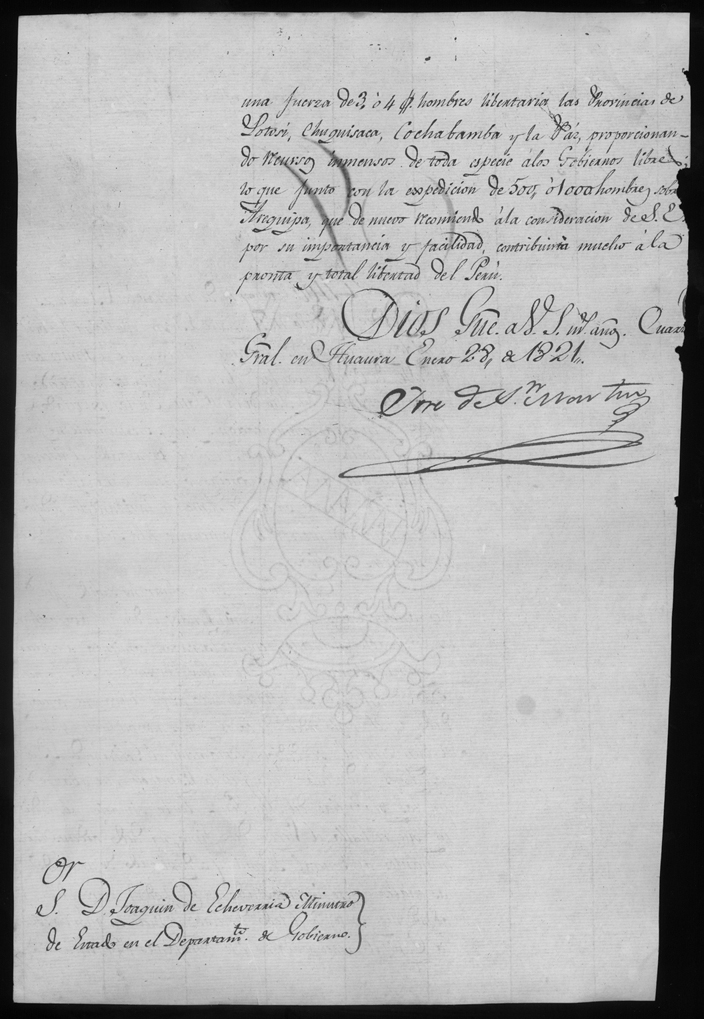 una fuerza de 3, ó 4 [mil] hombres libertaria las Provincias de
Potosí, Chuquisaca, Cochabamba y la Páz, proporcionan-
do recursos inmensos de toda especie á los Gobiernos libres;
lo que junto con la expedicion de 500, ó 1000 hombres sobre
Arequipa, que de nuevo recomiendo á la consideracion de S. E.
por su importancia y facilidad, contribuiria mucho á la
pronta y total libertad del Perú.
Dios Gue. a V. S. ms. años. Cuartl.
Gral. en Huaura Enero 28, de 1821.
Jose de Sn. Martin
Or
S. D. Joaquin de Echeverria Ministro
de Estado en el Departamto. de Gobierno.